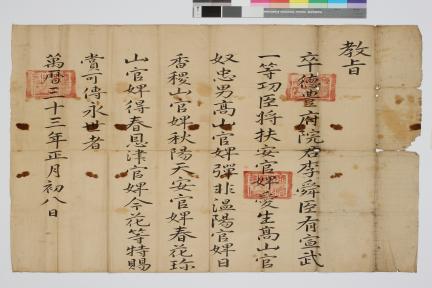 教旨
卒德豊府院君李舜臣有宣武
一等功臣将扶安官婢愛生髙山官
奴忠男髙山官婢彈非温陽官婢日
香稷山官婢秋陽天安官婢春花珎
山官婢得春恩津官婢今花等特賜
賞可傳永世者
萬曆三十三年正月初八日